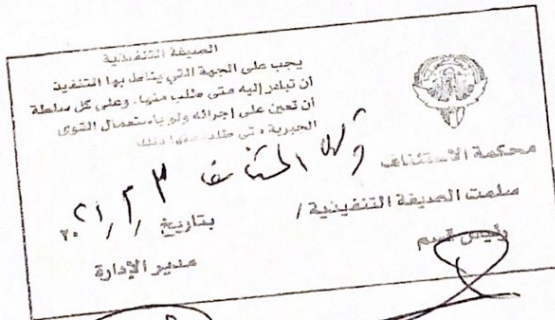 الصيغة التنفيذية
يجب على الجهة التي يناط بها التنفيذ
أن تبادر إليه متى طلب منها. وعلى كل سلطة
أن تعين على إجرائه ولو باستعمال القوى
الجبرية متى طلب منها ذلك
محكمة الاستئناف
سلمت الصيغة التنفيذية /
بتاريخ ٢٠٢١/٢/٣
رئيس قسم
مدير الإدارة